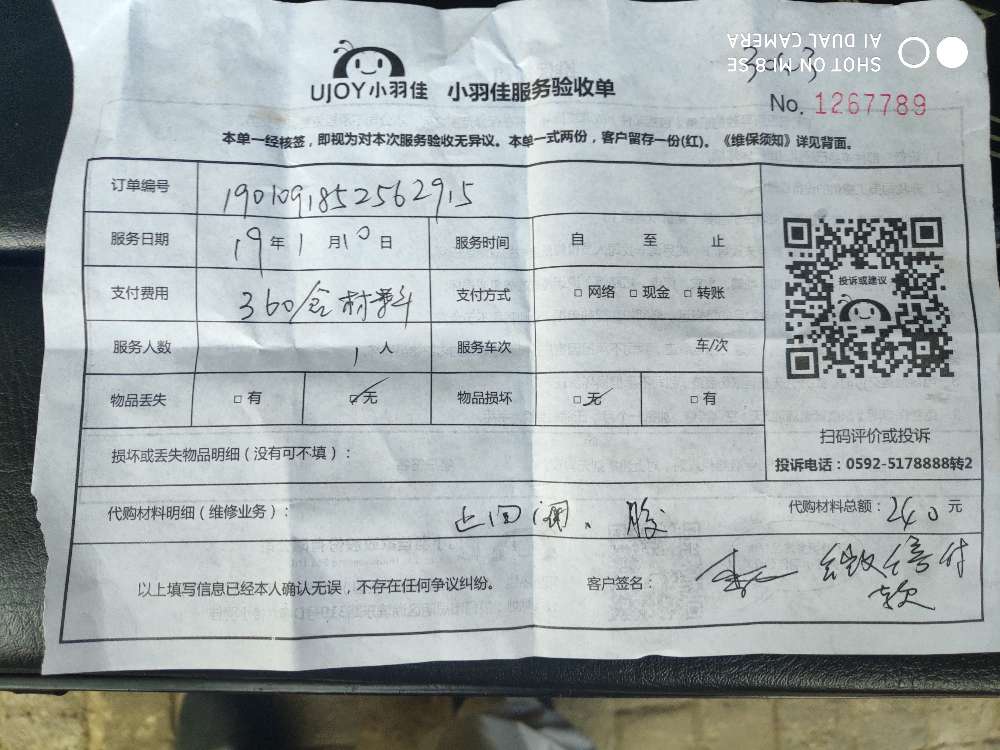 SHOT ON MI 8 SE
AI DUAL CAMERA
UJOY小羽佳 小羽佳服务验收单
No. 1267789
本单一经核签，即视为对本次服务验收无异议。本单一式两份，客户留存一份(红)。《维保须知》详见背面。
订单编号 1901091852562915
服务日期 19年1月10日 服务时间 自 至 止
支付费用 360/含材料 支付方式 □网络 □现金 □转账
服务人数 1人 服务车次 车/次
物品丢失 □有 □无 物品损坏 □无 □有
投诉或建议
扫码评价或投诉
投诉电话：0592-5178888转2
损坏或丢失物品明细（没有可不填）：
代购材料明细（维修业务）： 止回阀、胶 代购材料总额：240元
以上填写信息已经本人确认无误，不存在任何争议纠纷。 客户签名：
付
款